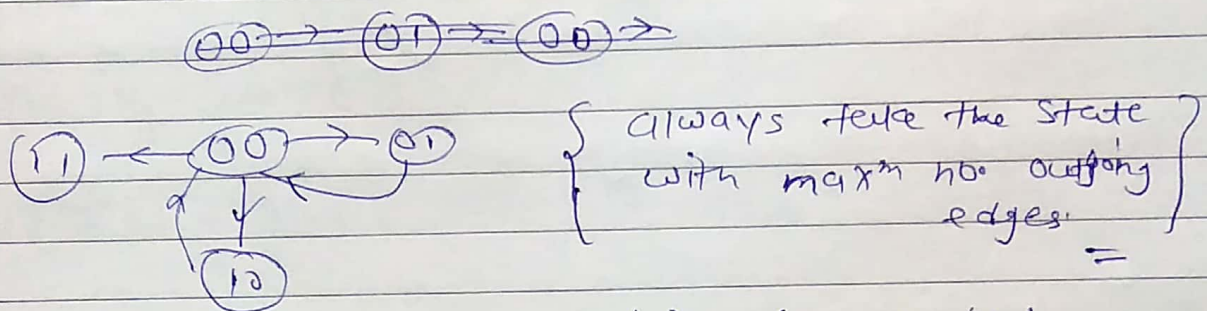 00 → 01 → 00 →
11 ← 00 → 01
always take the state
with maxᵐ no. outgoing
edges.
10